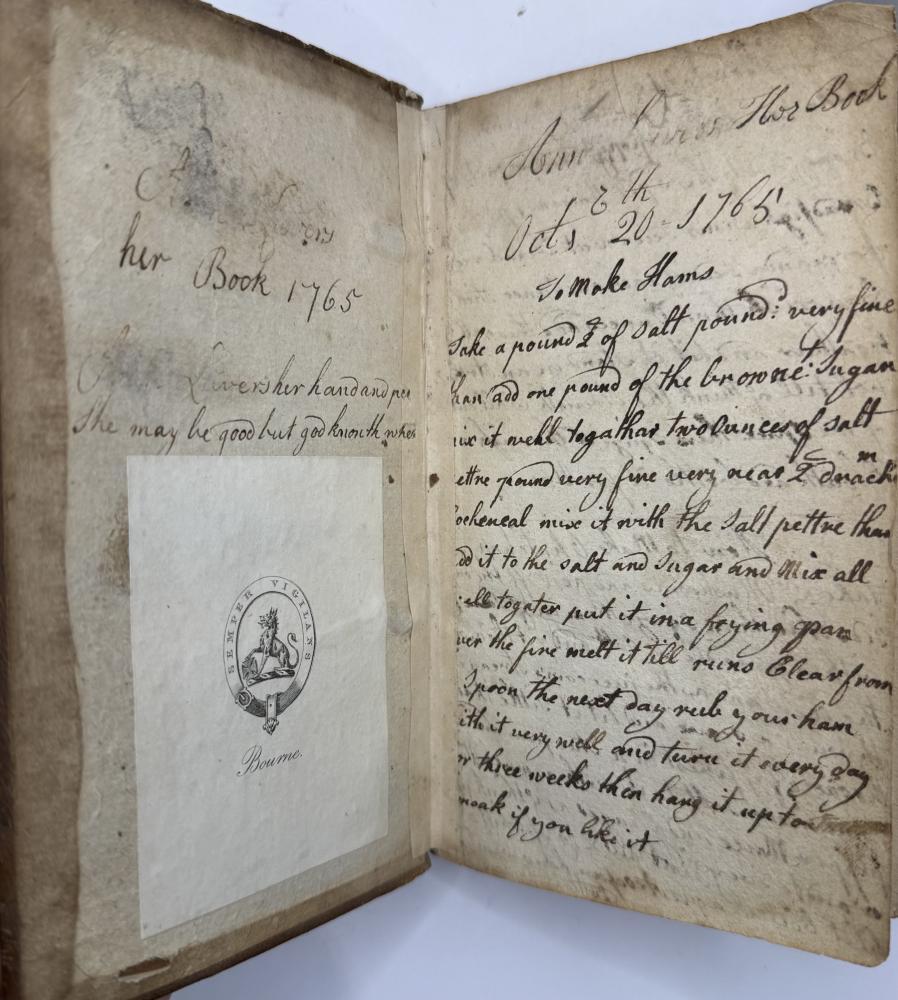 her Book 1765
Livers her hand and pen
She may be good but god knoweth when
SEMPER VIGILANS
Bourne.
Ann Her Book
Octs 20 th - 1765
To Make Hams
Take a pound ½ of salt pound: very fine
than add one pound of the browne:t Sugar
mix it well togathar two ounces of salt
pettre pound very fine very near ½ drachm
Cocheneal mix it with the Salt pettre than
add it to the salt and Sugar and Mix all
well togater put it in a frying pan
over the fire melt it till runs Clear from
Spoon the next day rub your ham
with it very well and turn it every day
for three weeks then hang it up to
smoak if you like it